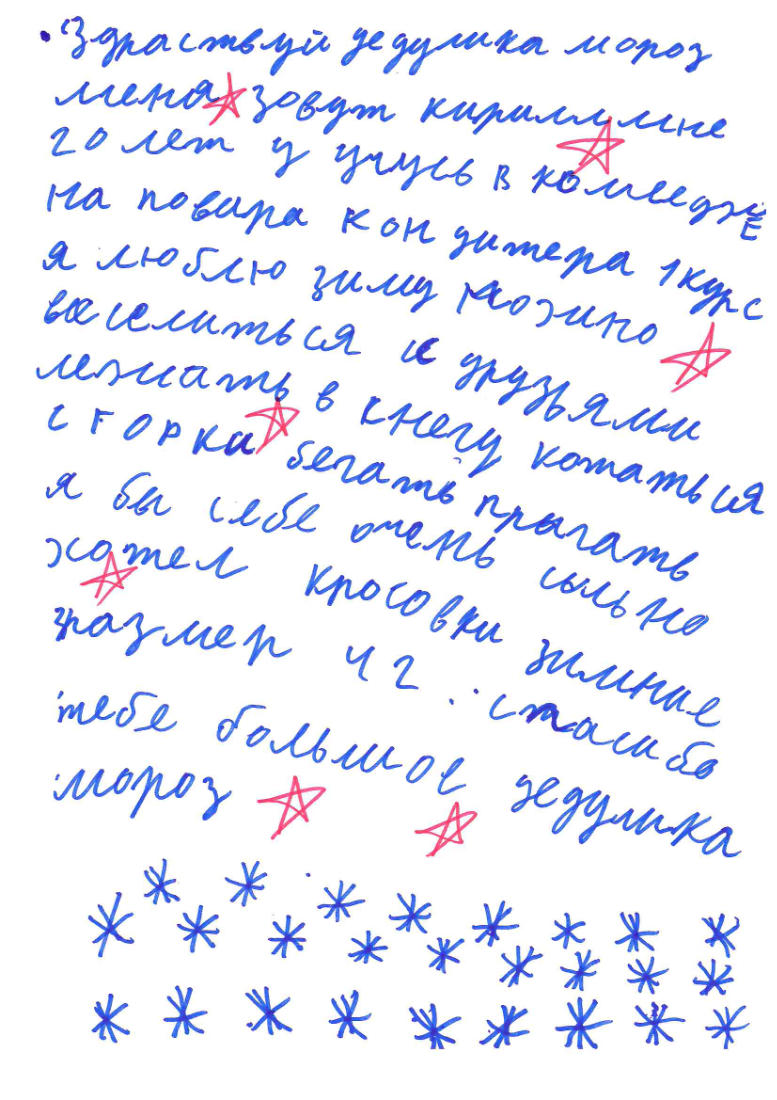 Здраствуй дедулика мороз
меня зовут кирилл мне
20 лет у учусь в колледже
на повара кондитера 1 курс
я люблю зиму можно
веселиться с друзьями
лежать в снегу котаться
с горки бегать прыгать
я бы себе очень сильно
хотел кросовки зимние
размер 42 спасибо
тебе большое дедулика
мороз